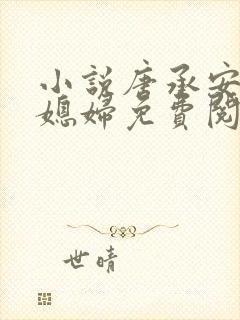 小説唐承安
媳婦免費閱
世晴